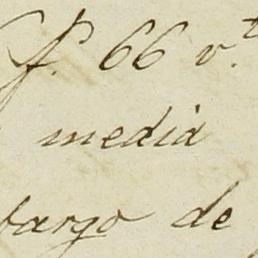 f. 66 v.t
media
bargo de